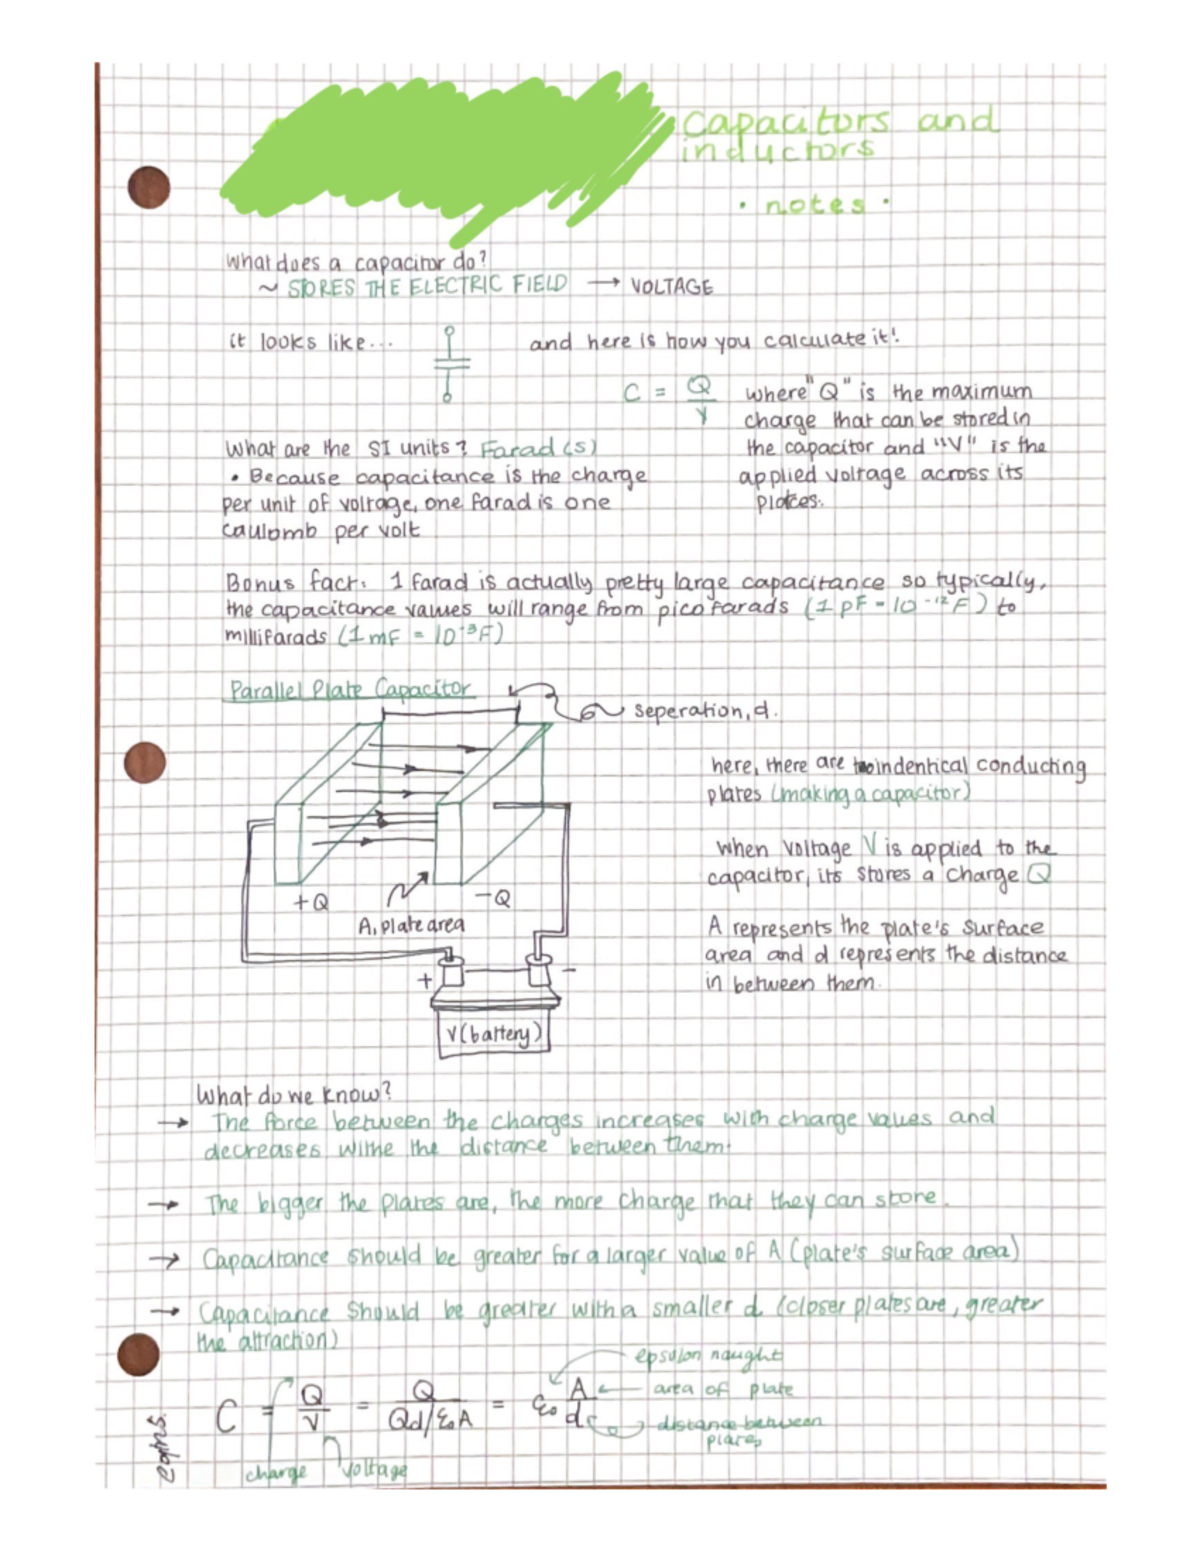 Capacitors and
inductors
• notes •
What does a capacitor do?
~ STORES THE ELECTRIC FIELD → VOLTAGE
it looks like... and here is how you calculate it!
C = Q/V where "Q" is the maximum
charge that can be stored in
the capacitor and "V" is the
applied voltage across its
plates.
What are the SI units? Farad(s)
• Because capacitance is the charge
per unit of voltage, one farad is one
caulomb per volt
Bonus fact: 1 farad is actually pretty large capacitance so typically,
the capacitance values will range from picofarads (1 pF = 10⁻¹²F) to
millifarads (1mF = 10⁻³F)
Parallel Plate Capacitor
seperation, d.
+Q
-Q
A, plate area
+
-
V (battery)
here, there are two indentical conducting
plates (making a capacitor)
When voltage V is applied to the
capacitor, its stores a charge Q
A represents the plate's surface
area and d represents the distance
in between them.
What do we know?
→ The force between the charges increases with charge values and
decreases withe the distance between them.
→ The bigger the plates are, the more charge that they can store.
→ Capacitance should be greater for a larger value of A (plate's surface area)
→ Capacitance should be greater with a smaller d (closer plates are, greater
the attraction)
epsulon naught
C = Q/V = Q/Qd/ε₀A = ε₀ A/d
area of plate
distance between
plates
charge voltage
eqtns.